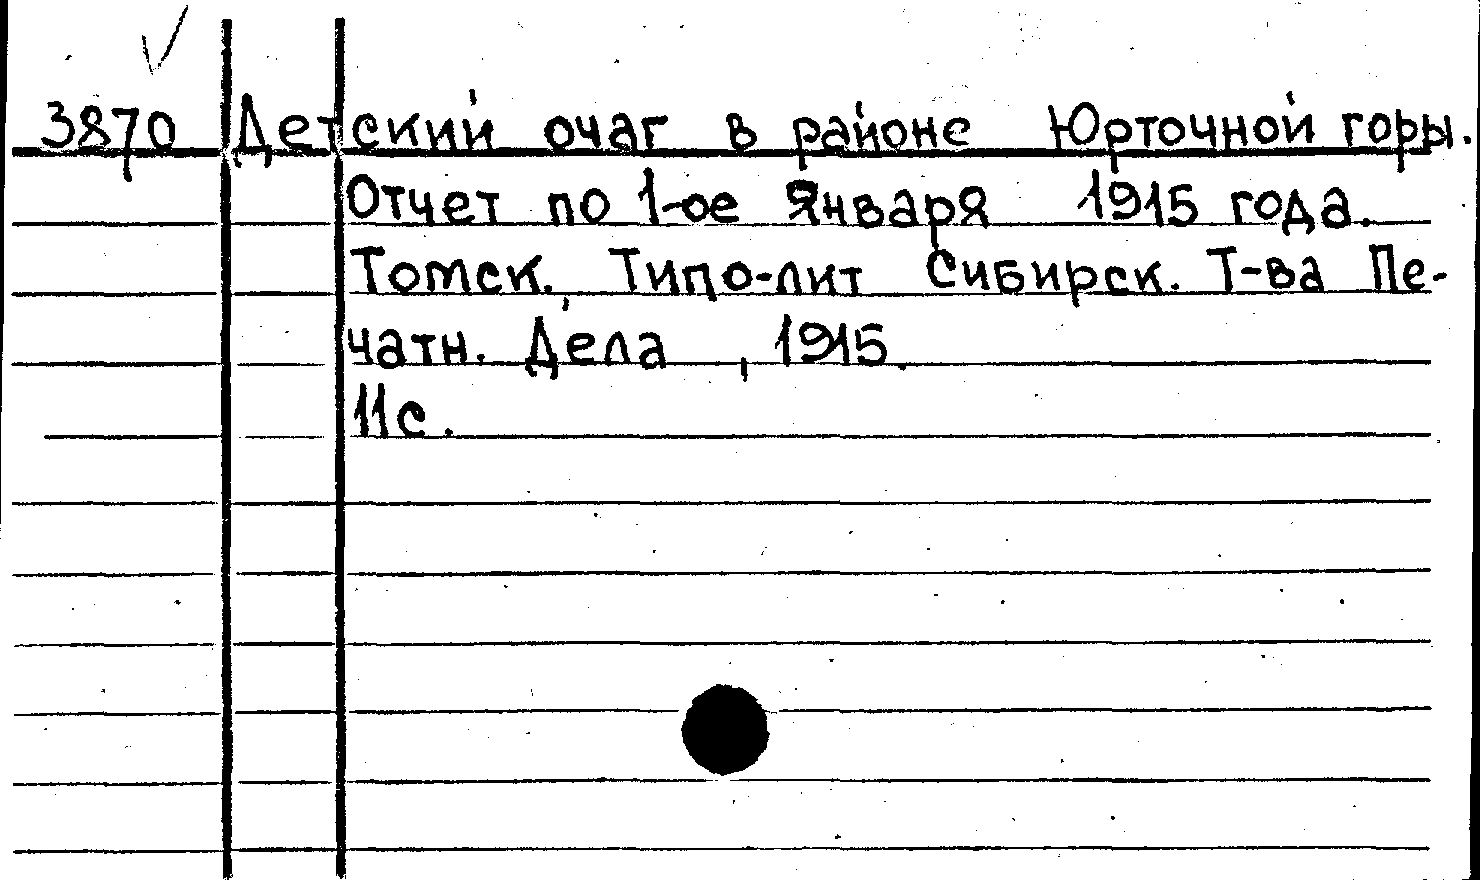 3870 Детский очаг в районе Юрточной горы.
Отчет по 1-ое Января 1915 года.
Томск., Типо-лит Сибирск. Т-ва Пе-
чатн. Дела , 1915.
11с.